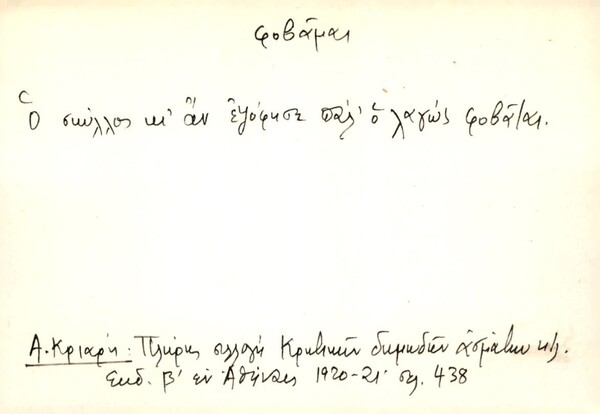 φοβᾶμαι
Ὁ σκύλλος κι' ἂν ἐψόφησε πάλ' ὁ λαγώς φοβᾶται.
Α. Κριάρη: Πλήρης συλλογή Κρητικῶν δημωδῶν ᾀσμάτων κτλ.
Ἐκδ. β' ἐν Ἀθήναις 1920-21 σελ. 438